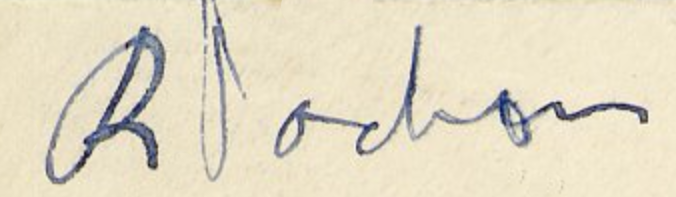 R Jackson